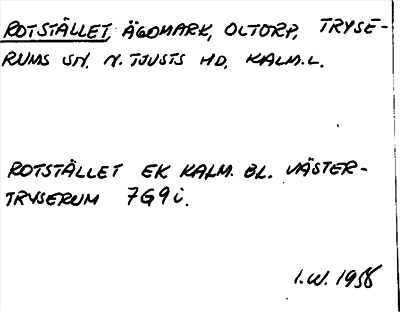 ROTSTÄLLET, ÄGOMARK, OLTORP, TRYSE-
RUMS SN. N. TJUSTS HD. KALM.L.
ROTSTÄLLET EK KALM. BL. VÄSTER-
TRYSERUM 7G9i.
I.W. 1958